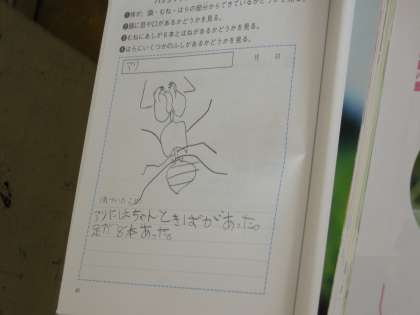 ❶体が、頭・むね・はらの部分からできているかどうかを見る。
❷頭に目や口があるかどうかを見る。
❸むねにあしが6本とはねがあるかどうかを見る。
❹はらにいくつかのふしがあるかどうかを見る。
アリ
月 日
気づいたこと
アリにはちゃんときばがあった。
足が6本あった。